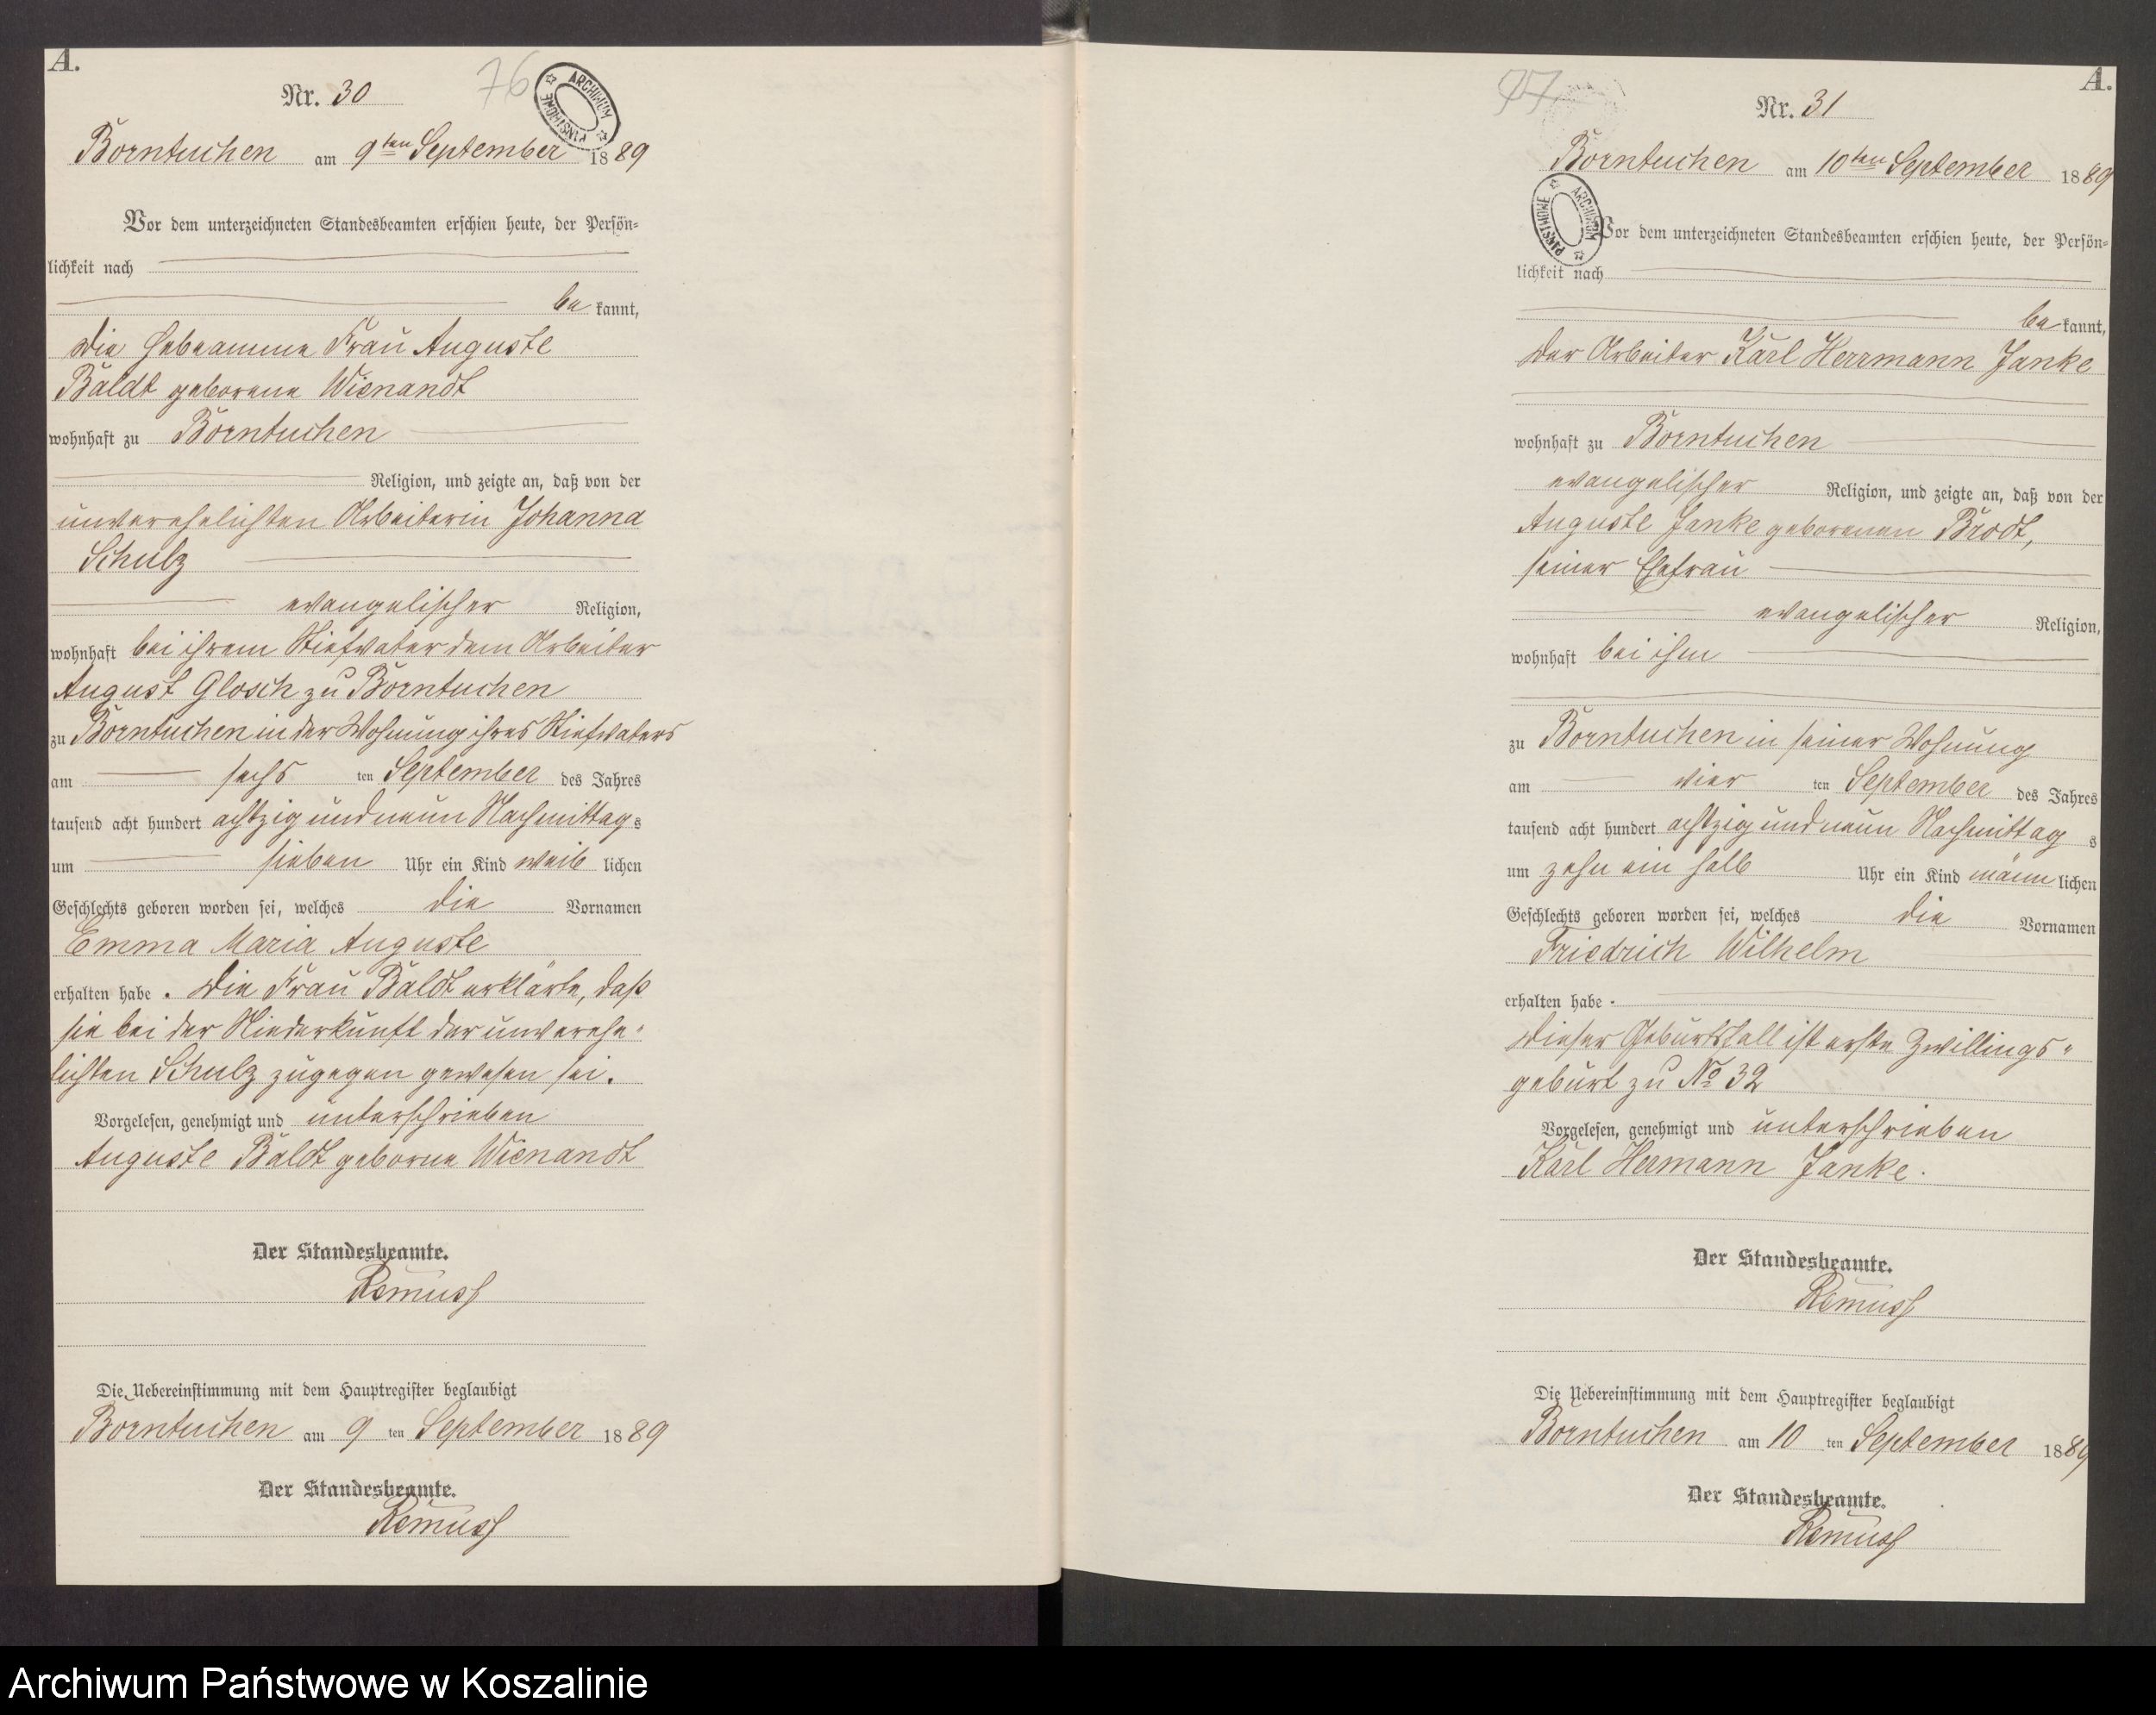 A.
Nr. 30
76
ARCHIWUM PAŃSTWOWE
Borntuchen am 9ten September 1889
Vor dem unterzeichneten Standesbeamten erschien heute, der Persön-
lichkeit nach
be kannt,
die Hebeamme Frau Auguste
Baldt geborene Wienandt
wohnhaft zu Borntuchen
Religion, und zeigte an, daß von der
unverehelichten Arbeiterin Johanna
Schulz
evangelischer Religion,
wohnhaft bei ihrem Stiefvater dem Arbeiter
August Glosch zu Borntuchen
zu Borntuchen in der Wohnung ihres Stiefvaters
am sechs ten September des Jahres
tausend acht hundert achtzig und neun Nachmittag s
um sieben Uhr ein Kind weib lichen
Geschlechts geboren worden sei, welches die Vornamen
Emma Maria Auguste
erhalten habe . Die Frau Baldt erklärte, daß
sie bei der Niederkunft der unverehe-
lichten Schulz zugegen gewesen sei.
Vorgelesen, genehmigt und unterschrieben
Auguste Baldt geborne Wienandt
Der Standesbeamte.
Remuss
Die Uebereinstimmung mit dem Hauptregister beglaubigt
Borntuchen am 9 ten September 1889
Der Standesbeamte.
Remuss
A.
77
Nr. 31
Borntuchen am 10ten September 1889
ARCHIWUM PAŃSTWOWE
Vor dem unterzeichneten Standesbeamten erschien heute, der Persön-
lichkeit nach
be kannt,
der Arbeiter Karl Herrmann Janke
wohnhaft zu Borntuchen
evangelischer Religion, und zeigte an, daß von der
Auguste Janke geborenen Brodt,
seiner Ehefrau
evangelischer Religion,
wohnhaft bei ihm
zu Borntuchen in seiner Wohnung
am vier ten September des Jahres
tausend acht hundert achtzig und neun Nachmittag s
um zehn ein halb Uhr ein Kind männ lichen
Geschlechts geboren worden sei, welches die Vornamen
Friedrich Wilhelm
erhalten habe .
Dieser Geburtsfall ist erste Zwillings-
geburt zu No 32
Vorgelesen, genehmigt und unterschrieben
Karl Hermann Janke.
Der Standesbeamte.
Remuss
Die Uebereinstimmung mit dem Hauptregister beglaubigt
Borntuchen am 10 ten September 1889
Der Standesbeamte.
Remuss
Archiwum Państwowe w Koszalinie